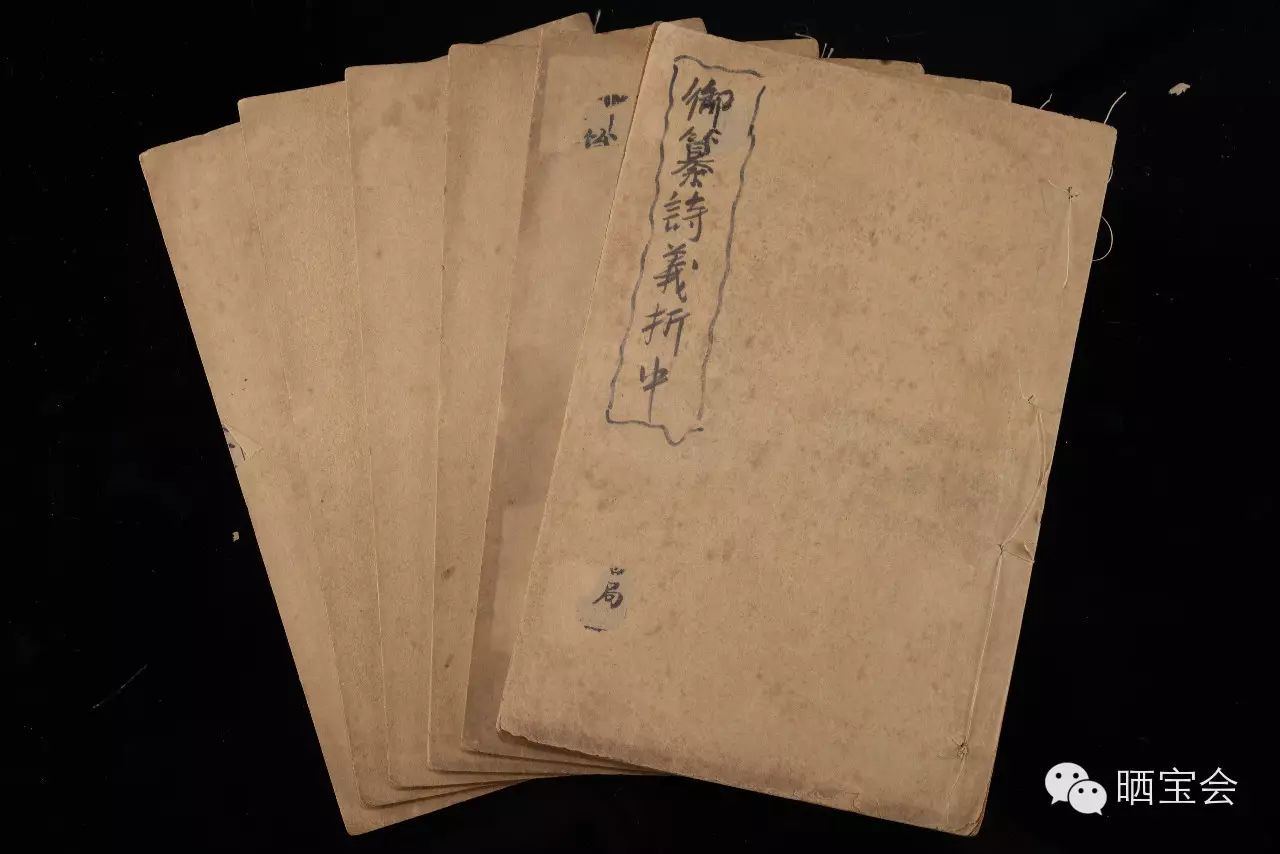 御纂詩義折中
局
晒宝会